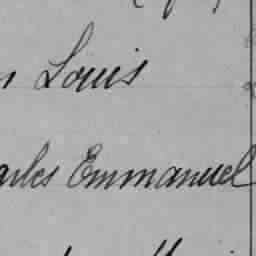 Louis
arles Emmanuel